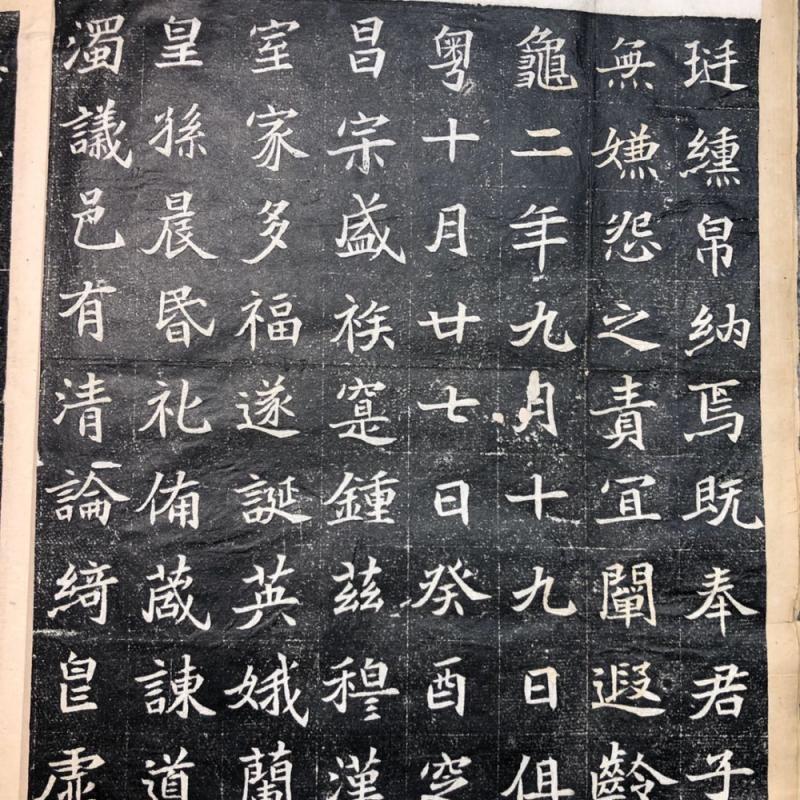 纁帛納焉既奉君子
無嫌怨之責宜闡遐齡
龜二年九月十九日
粵十月廿七日癸酉窆
昌宗盛族寔鍾茲穆漢
室家多福遂誕英娥蘭
皇孫晨昬礼俻葴諫道
濁議邑有清論綺皀虛